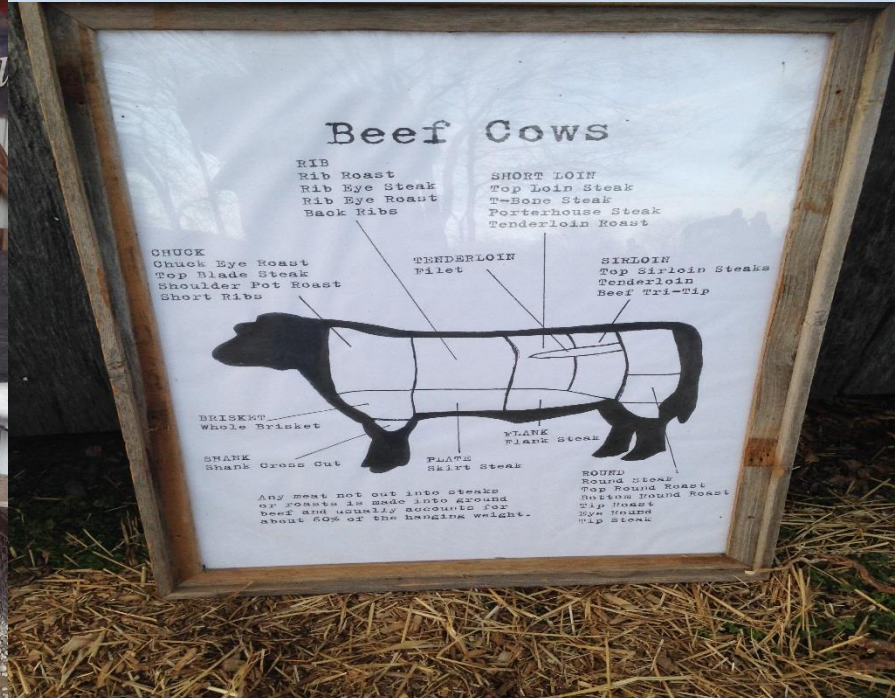 Beef Cows
RIB
Rib Roast
Rib Eye Steak
Rib Eye Roast
Back Ribs
SHORT LOIN
Top Loin Steak
T-Bone Steak
Porterhouse Steak
Tenderloin Roast
CHUCK
Chuck Eye Roast
Top Blade Steak
Shoulder Pot Roast
Short Ribs
TENDERLOIN
Filet
SIRLOIN
Top Sirloin Steaks
Tenderloin
Beef Tri-Tip
BRISKET
Whole Brisket
SHANK
Shank Cross Cut
PLATE
Skirt Steak
FLANK
Flank Steak
ROUND
Round Steak
Top Round Roast
Bottom Round Roast
Tip Roast
Eye Round
Tip Steak
Any meat not cut into steaks
or roasts is made into ground
beef and usually accounts for
about 60% of the hanging weight.